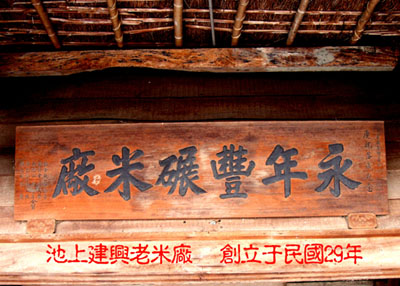 永年豐碾米廠
池上建興老米廠 創立于民國29年